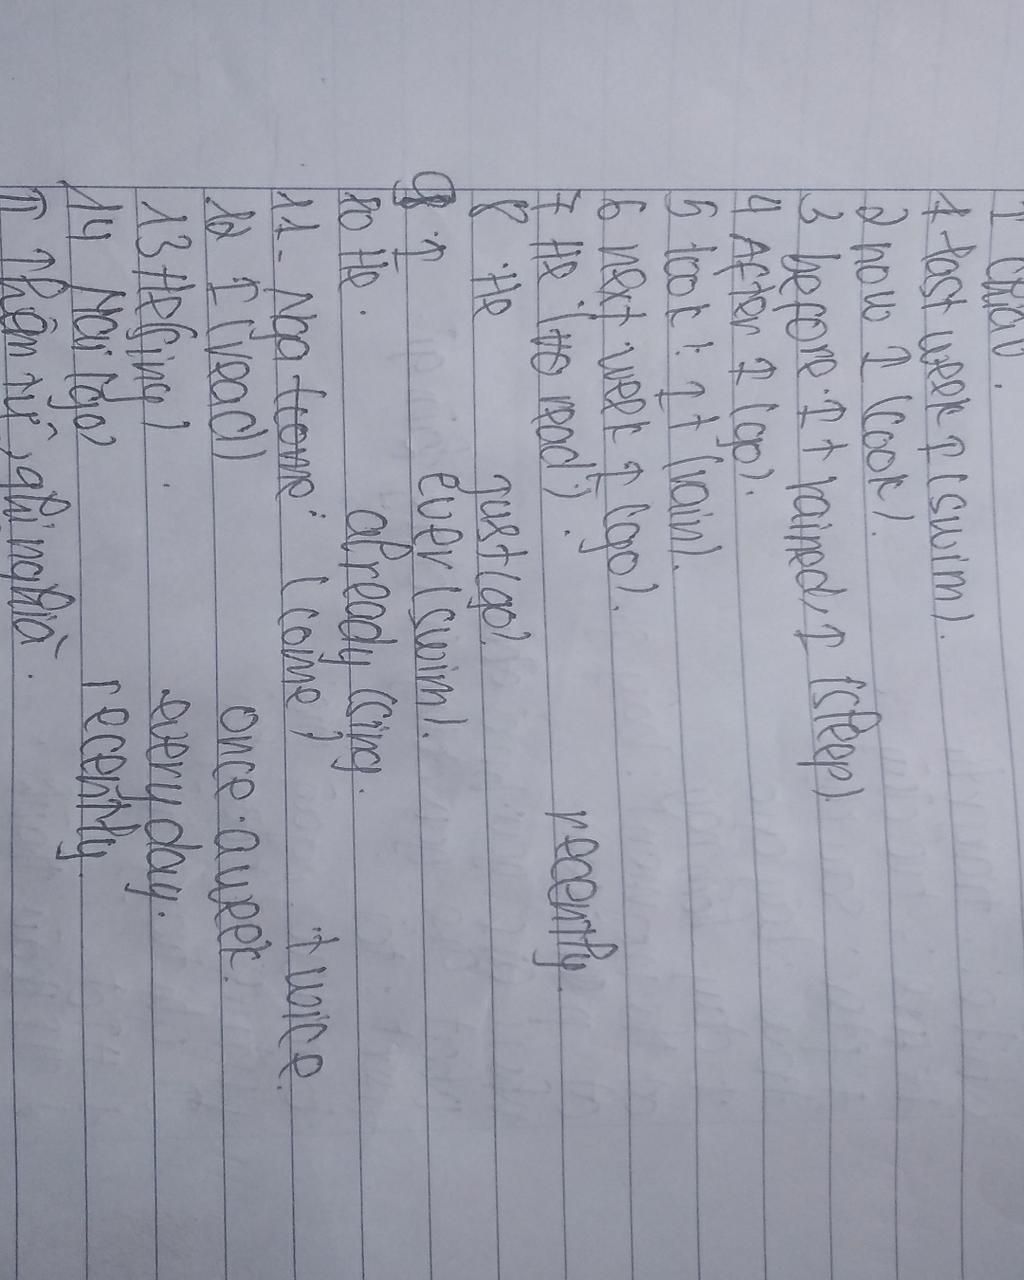 I chia.
1 last week I (swim).
2 now I (cook).
3 before. It rained, I (sleep).
4 After I (go).
5 look! It (rain).
6 next week I (go).
7 He (to read). recently.
8 He just (go).
9 I ever (swim).
10 He. already (sing.
11- Nga (come) twice.
12 I (read) once a week.
13 He (sing). every day.
14 Mai (go) recently
II Thêm từ, ghi nghĩa.